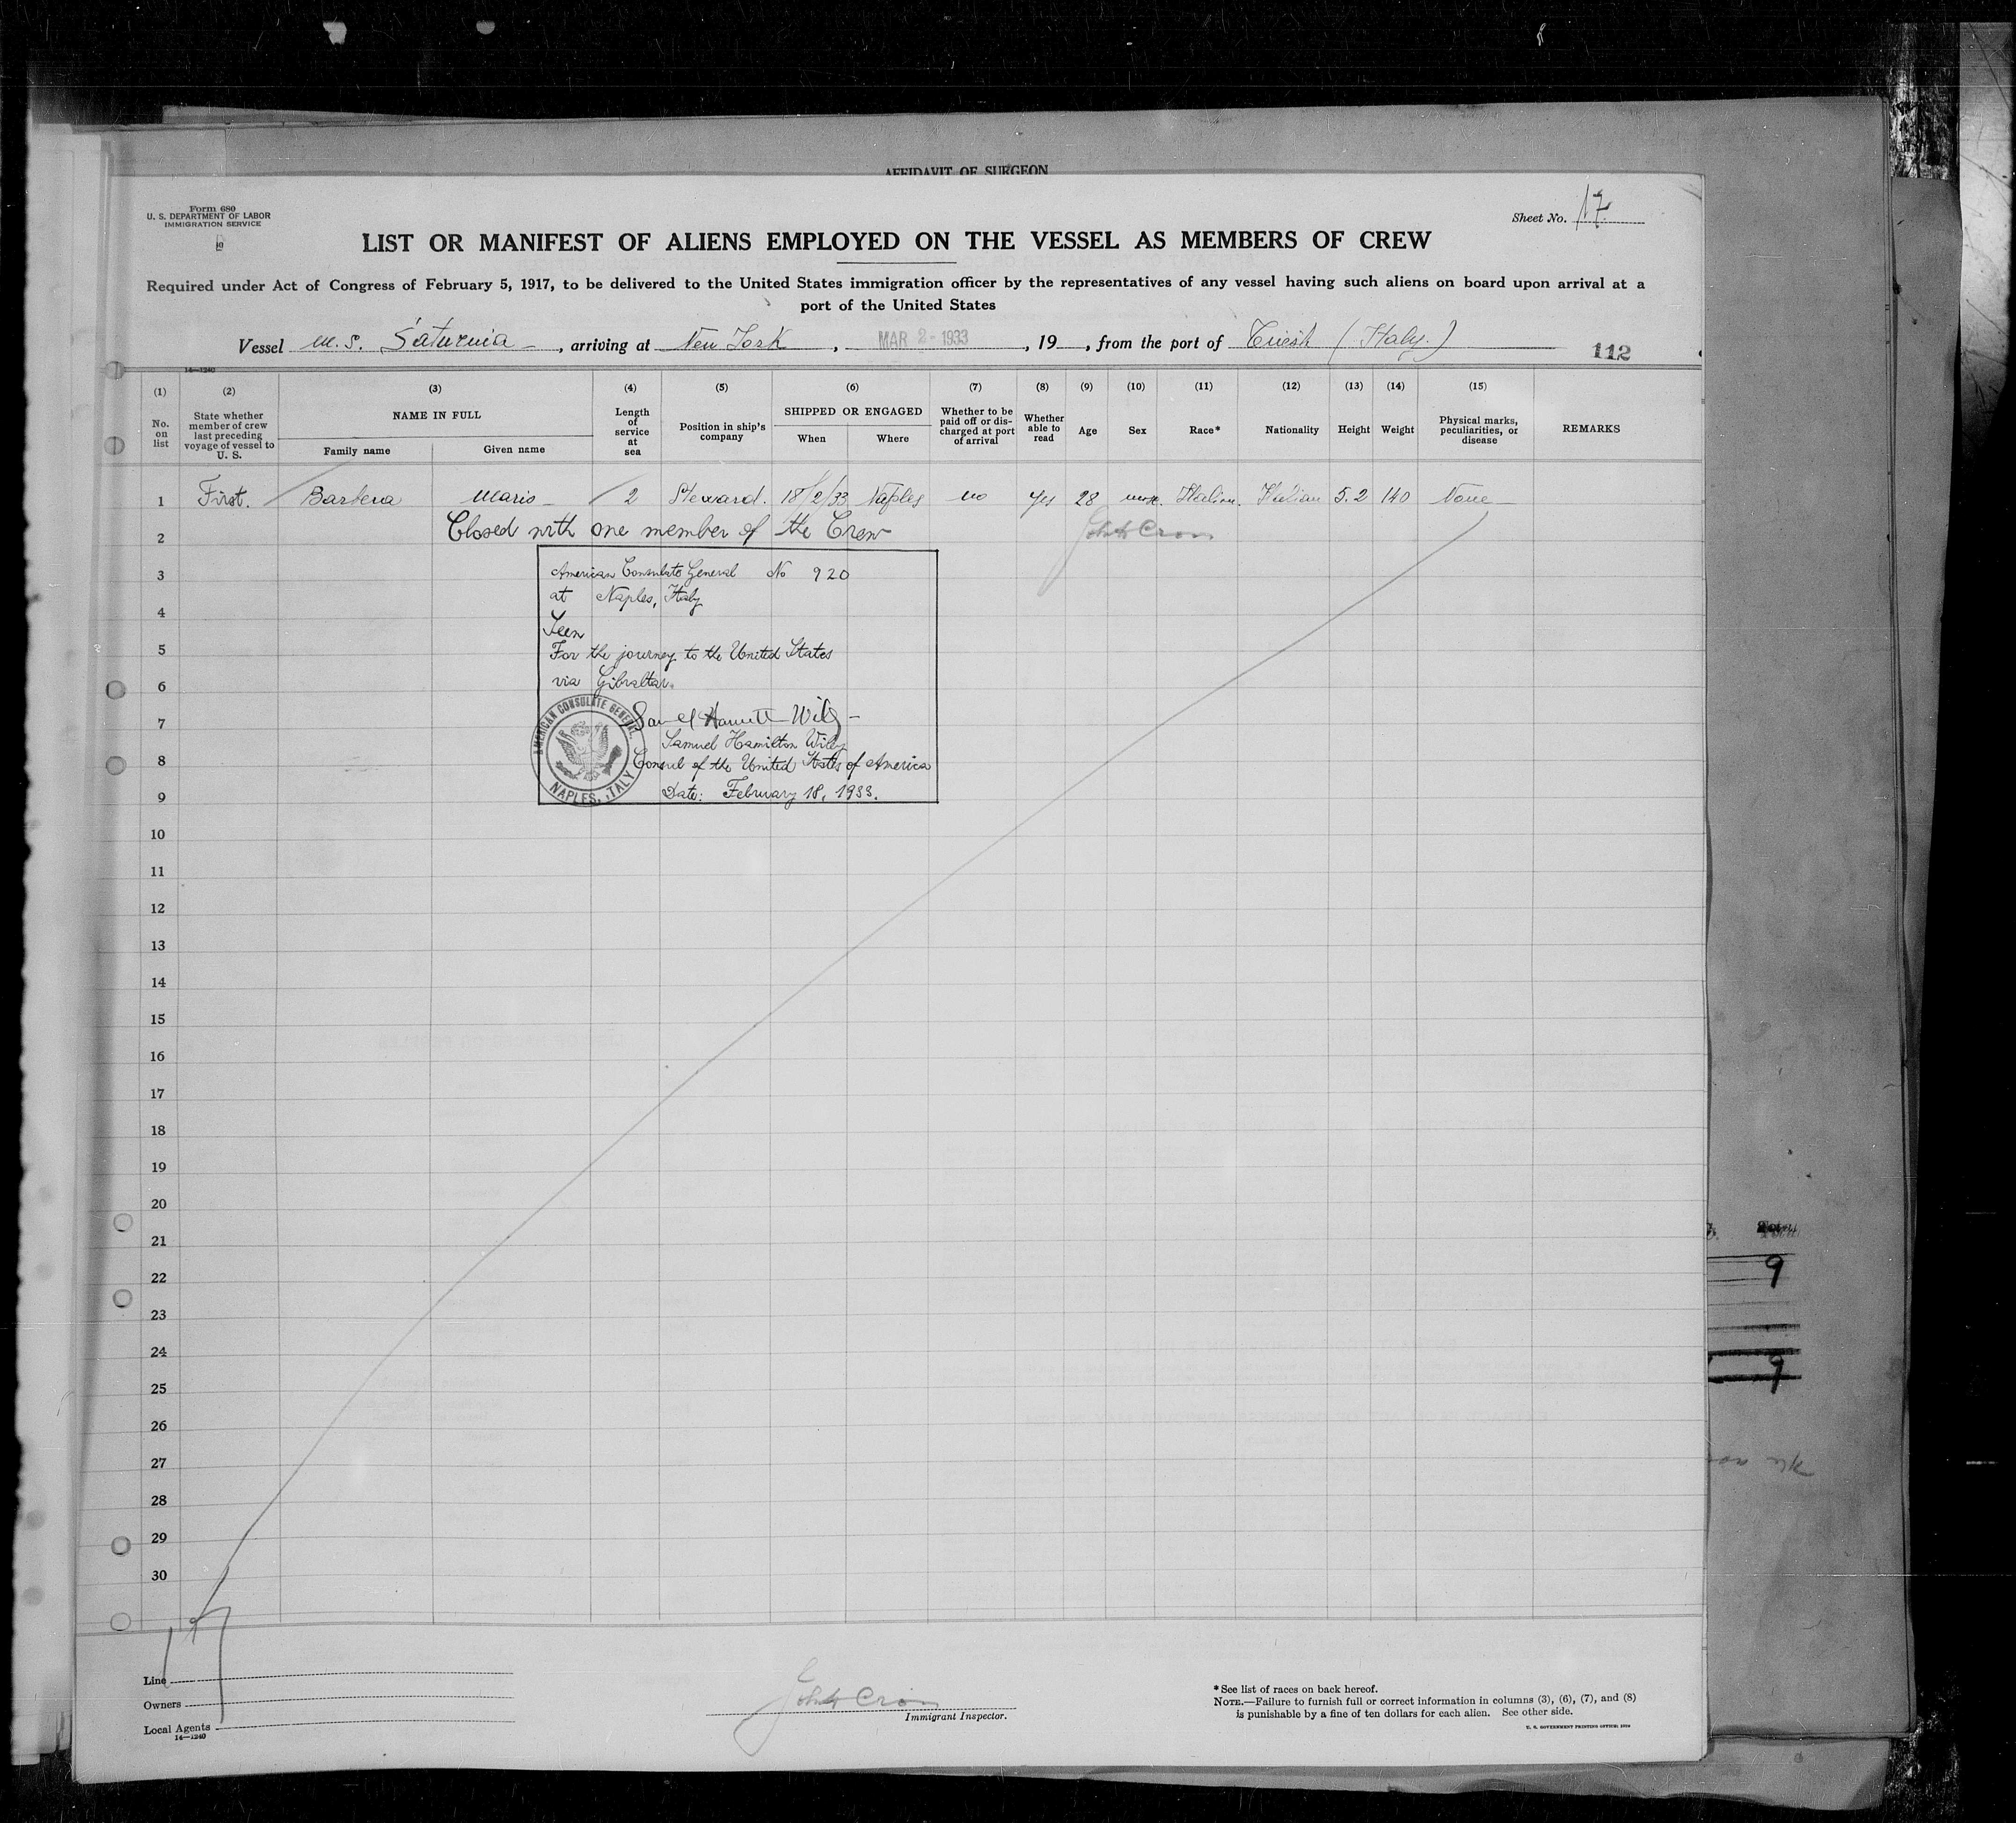 AFFIDAVIT OF SURGEON
Form 680
U. S. DEPARTMENT OF LABOR
IMMIGRATION SERVICE
Sheet No. 17
LIST OR MANIFEST OF ALIENS EMPLOYED ON THE VESSEL AS MEMBERS OF CREW
Required under Act of Congress of February 5, 1917, to be delivered to the United States immigration officer by the representatives of any vessel having such aliens on board upon arrival at a
port of the United States
Vessel M.S. Saturnia, arriving at New York, MAR 2 - 1933, 19, from the port of (Italy)
112
14—1240
(1) (2) (3) (4) (5) (6) (7) (8) (9) (10) (11) (12) (13) (14) (15)
No. on list
State whether member of crew last preceding voyage of vessel to U. S.
NAME IN FULL
Family name
Given name
Length of service at sea
Position in ship's company
SHIPPED OR ENGAGED
When
Where
Whether to be paid off or discharged at port of arrival
Whether able to read
Age
Sex
Race*
Nationality
Height
Weight
Physical marks, peculiarities, or disease
REMARKS
1 First. Mario 2 Steward. 18/2/33 Naples no yes 28 Italian. Italian 5.2 140 None
2 Closed with one member of the Crew
3
4
5
6
7
8
9
American Consulate General No 920
at Naples, Italy
Seen
For the journey to the United States
via Gibraltar.
Samuel Hamilton Wiley
Consul of the United States of America
Date: February 18, 1933.
AMERICAN CONSULATE GENERAL
NAPLES, ITALY
10
11
12
13
14
15
16
17
18
19
20
21
22
23
24
25
26
27
28
29
30
9
9
Line
Owners
Local Agents
14—1240
Immigrant Inspector.
*See list of races on back hereof.
NOTE.—Failure to furnish full or correct information in columns (3), (6), (7), and (8)
is punishable by a fine of ten dollars for each alien. See other side.